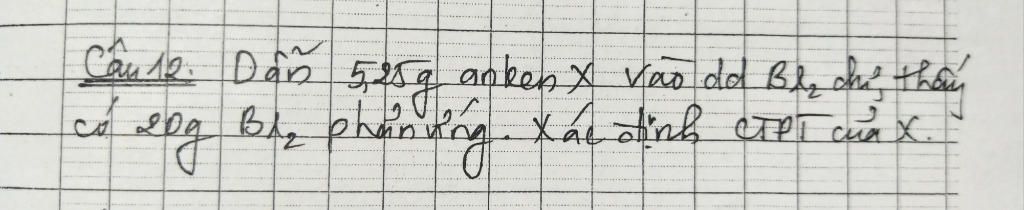 Câu 12. Dẫn 5,25g anken X vào dd Br₂ dư, thấy
có 20g Br₂ phản ứng. Xác định CTPT của X.